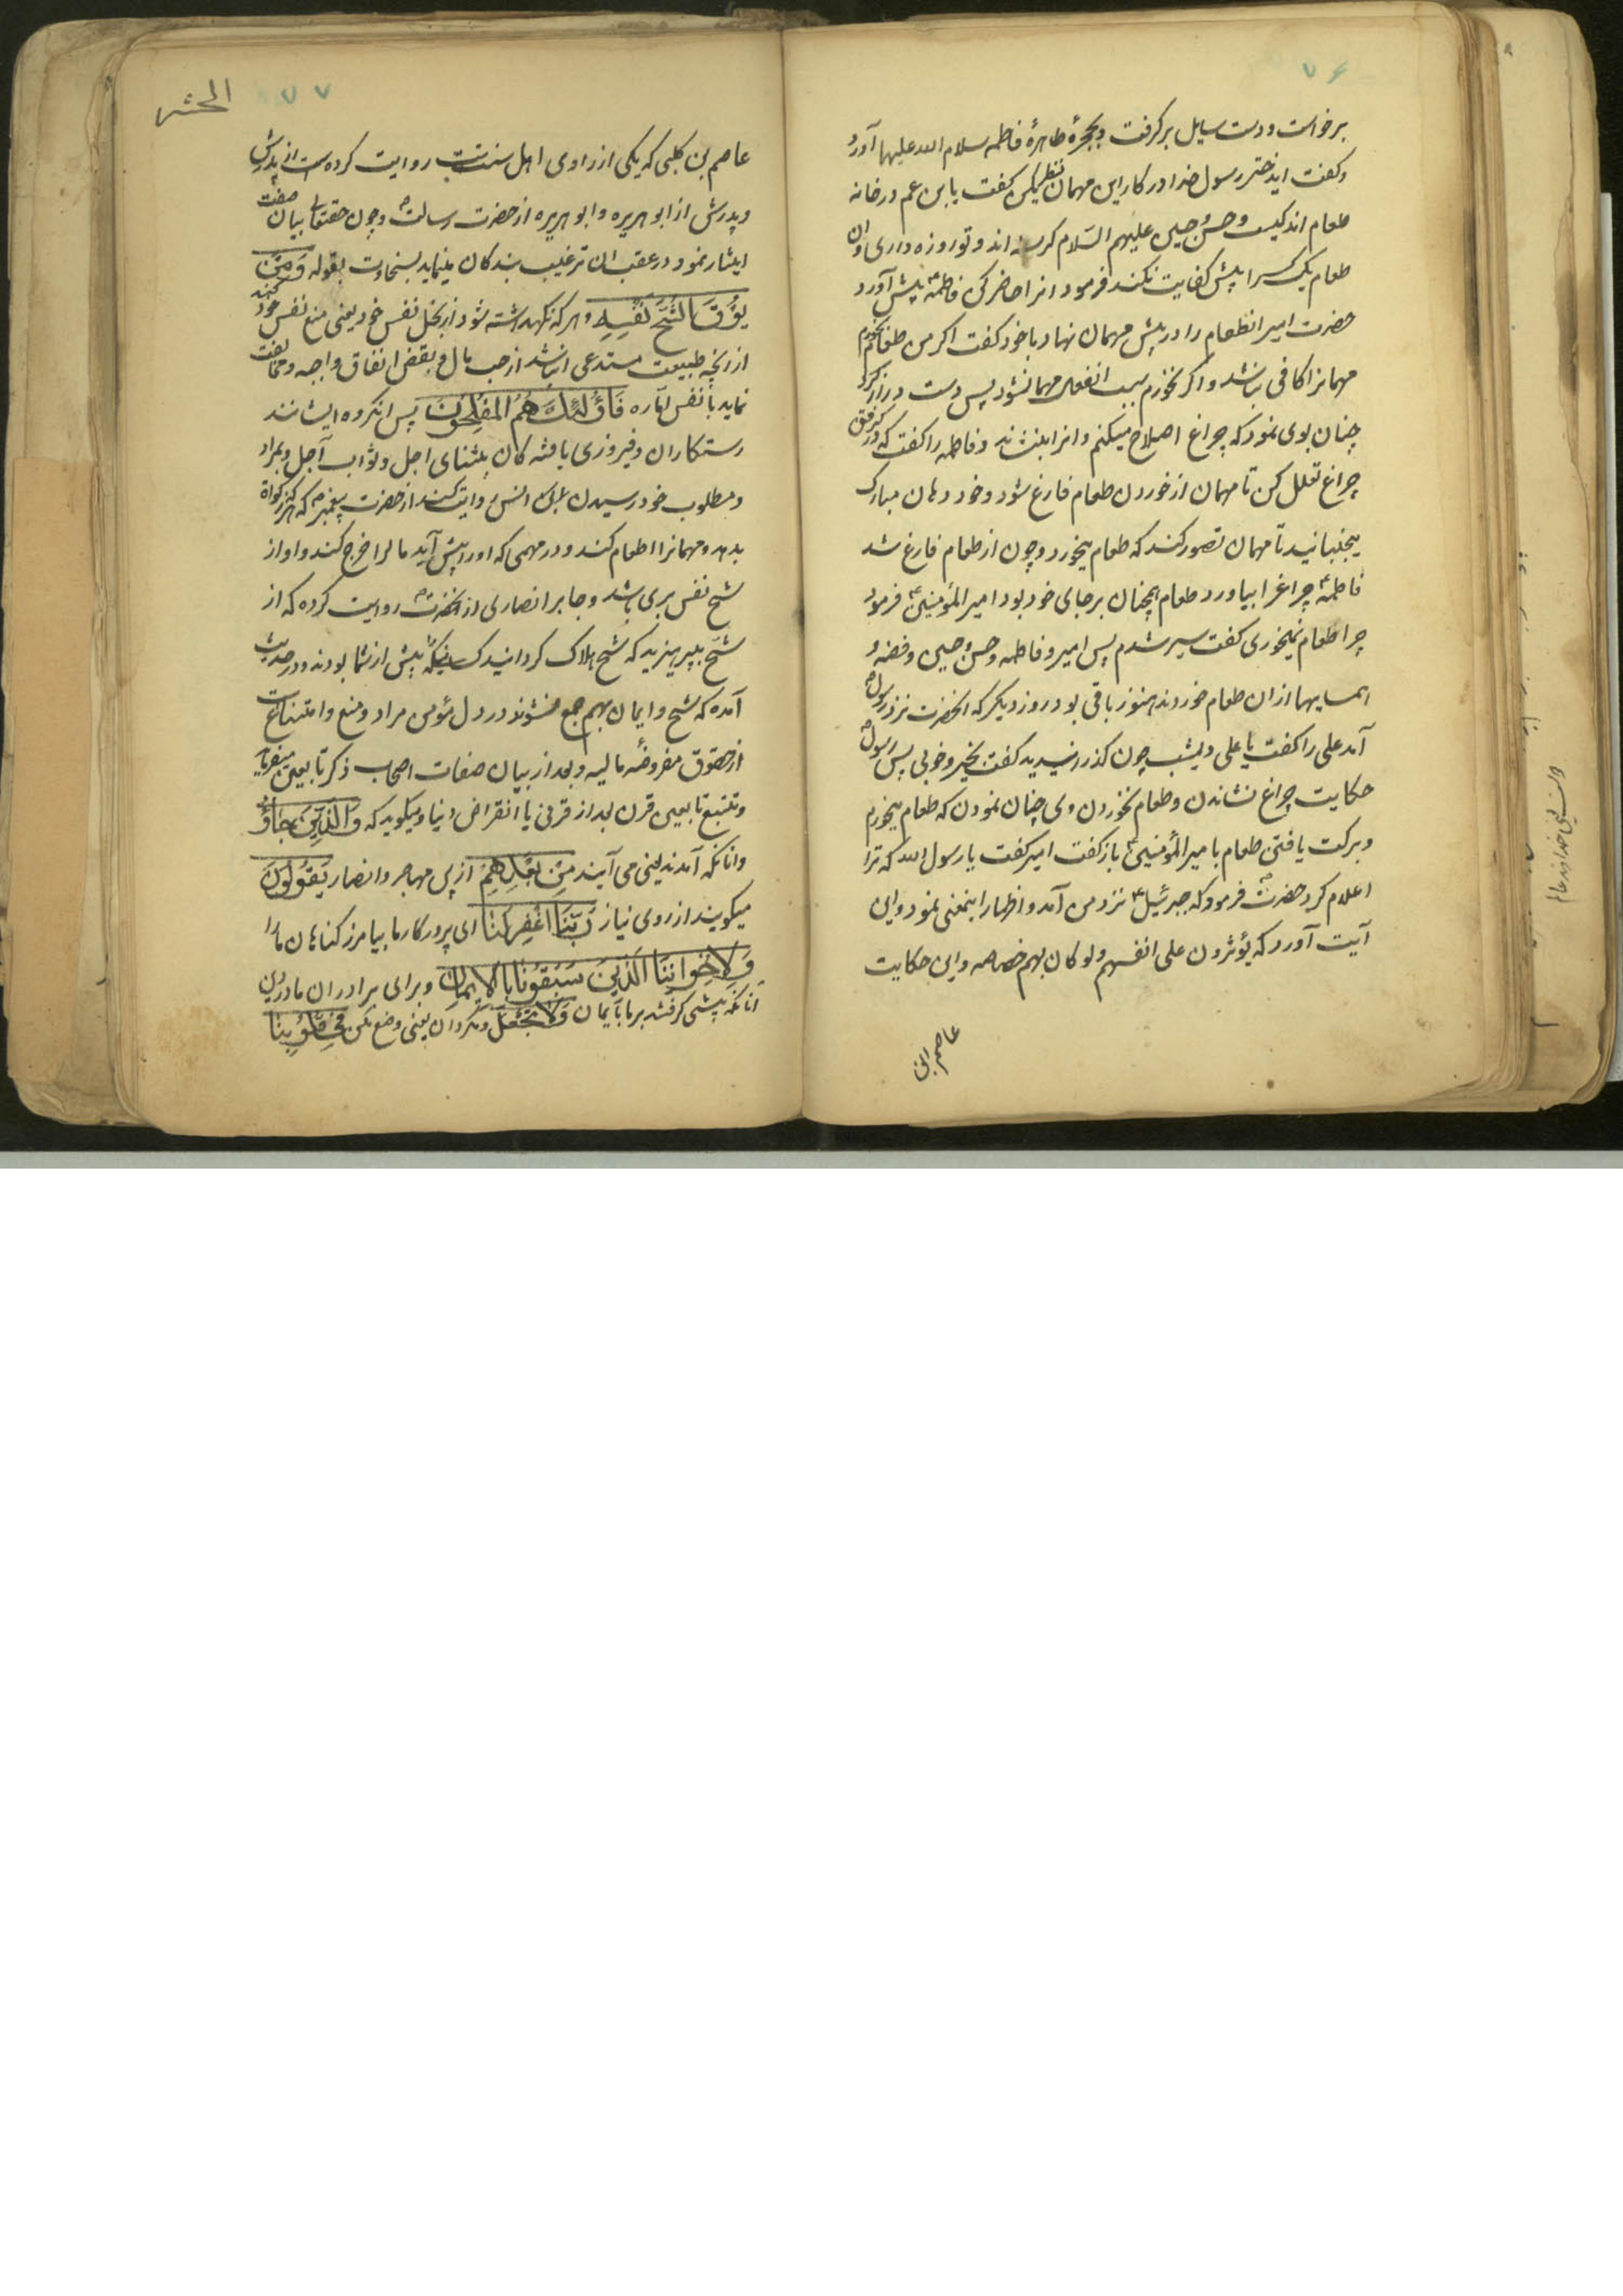 ۷۶
برخواست ودست سایل برکرفت وبحجرهٔ طاهرهٔ فاطمه سلام الله علیها آورد
وکفت ایدختر رسول خدا در کار این مهمان نظر کن کفت یابن عم در خانه
طعام اندکیست وحسن وحسین علیهم السّلام کرسنه اند و تو روزه داری و آن
طعام یک کس را بیش کفایت نکند فرمود انرا حاضر کن فاطمهٴ پیش آورد
حضرت امیر انطعام را در پیش مهمان نهاد با خود کفت اکر من طعام بخورم
مهمانرا کافی نباشد واکر نخورم سبب انفعال مهمان شود پس دست دراز کرد
چنان بوی نمود که چراغ اصلاح میکنم وانرا بنشاند وفاطمه را کفت که در کرفتن
چراغ تعلل کن تا مهمان از خوردن طعام فارغ شود وخود دهان مبارک
میجنبانید تا مهمان تصور کند که طعام میخورد وچون از طعام فارغ شد
فاطمهٴ چراغرا بیاورد طعام همچنان بر جای خود بود امیرالمؤمنینٴ فرمود
چرا طعام نمیخوری کفت سیر شدم پس امیر وفاطمه وحسن وحسین وفضه و
همسایهها از ان طعام خوردند هنوز باقی بود روز دیکر که انحضرت نزد رسول
آمد علی را کفت یا علی دیشب چون کذرانیدید کفت بخیر وخوبی پس رسول
حکایت چراغ نشاندن وطعام نخوردن وی چنان نمودن که طعام میخورم
وبرکت یافتن طعام با میرالمؤمنینٴ باز کفت امیر کفت یا رسول الله که ترا
اعلام کرد حضرت فرمود که جبرئیل نزد من آمد واظهار اینمعنی نمود واین
آیت آورد که یؤثرون علی انفسهم ولو کان بهم خصاصه واین حکایت
عاصم بن
۷۷
الحشر
عاصم بن کلبی که یکی از راوی اهل سنتست روایت کرده است از پدرش
وپدرش از ابو هریره وابو هریره از حضرت رسالت وچون حقتعالی بیان صفت
ایثار نمود در عقب ان ترغیب بندکان مینماید بسخاوت بقوله وَمَن
یُوقَ شُحَّ نَفسِهِ وهر که نکهداشته شود از بخل نفس خود یعنی منع نفس خود کند
از انچه طبیعت مستدعی ان باشد از حب مال و بغض انفاق واجبه ومخالفت
نماید با نفس اماره فَاُولئِکَ هُمُ المُفلِحُونَ پس انکروه ایشانند
رستکاران وفیروزی یافته کان بثنای اجل وثواب آجل وبمراد
ومطلوب خود رسیدن انس روایت کند از حضرت پیغمبر که هر که زکوة
بدهد ومهمانرا اطعام کند ودر مهمی که او را پیش آید مالرا خرج کند او از
شح نفس بری باشد وجابر انصاری از انحضرت روایت کرده که از
شحّ بپرهیزید که شح هلاک کردانید کسانیکه پیش از شما بودند ودر حدیث
آمده که شح وایمان بهم جمع نشوند در دل مؤمن مراد ومنع وامتناعست
از حقوق مفروضهٔ مالیه وبعد از بیان صفات اصحاب ذکر تابعین میفرماید
وتتبع تابعین قرن بعد از قرنی تا انقراض دنیا ومیکوید که وَالَّذِینَ جَاؤُ
وانانکه آمدند یعنی می آیند مِن بَعدِهِم از پی مهاجر وانصار یَقُولُونَ
میکویند از روی نیاز رَبَّنَا اغفِر لَنَا ای پروردکار ما بیامرز کناهان ما را
وَلِاِخوَانِنَا الَّذِینَ سَبَقُونَا بِالاِیمَانِ وبرای برادران ما در دین
انانکه پیشی کرفتند بر ما بایمان وَلَا تَجعَل ومکردان یعنی وضع مکن فِی قُلُوبِنَا